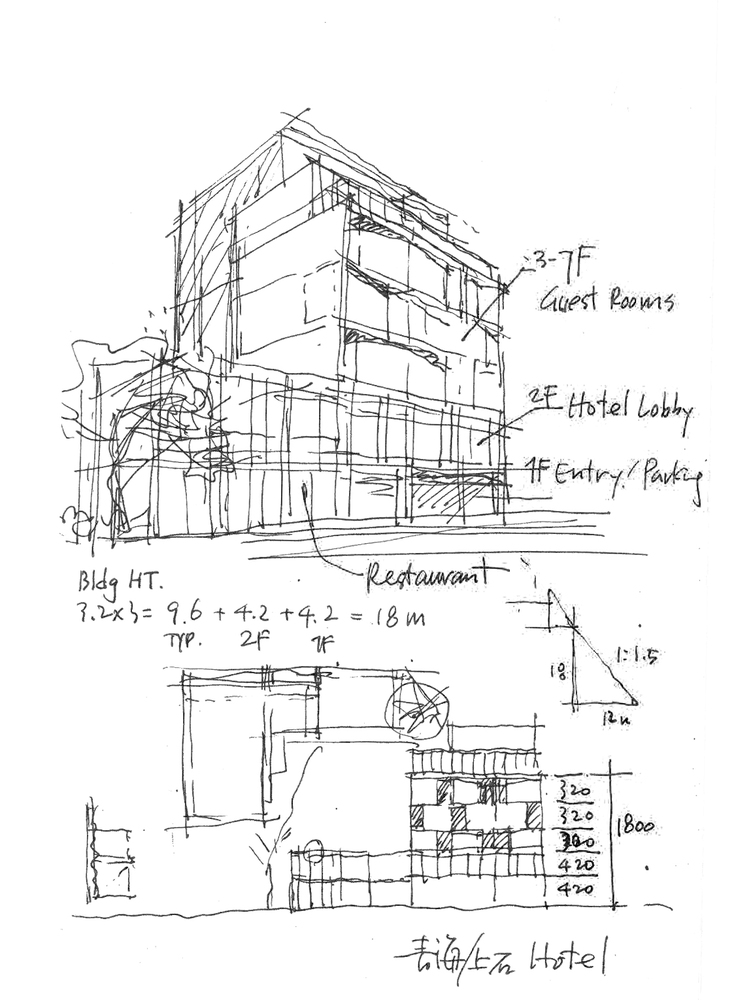 3-7F
Guest Rooms
2F Hotel Lobby
1F Entry/Parking
Restaurant
Bldg HT.
3.2x3= 9.6 + 4.2 + 4.2 = 18 m
TYP. 2F 1F
18
1:1.5
12m
320
320
320
420
420
1800
青海/上石 Hotel